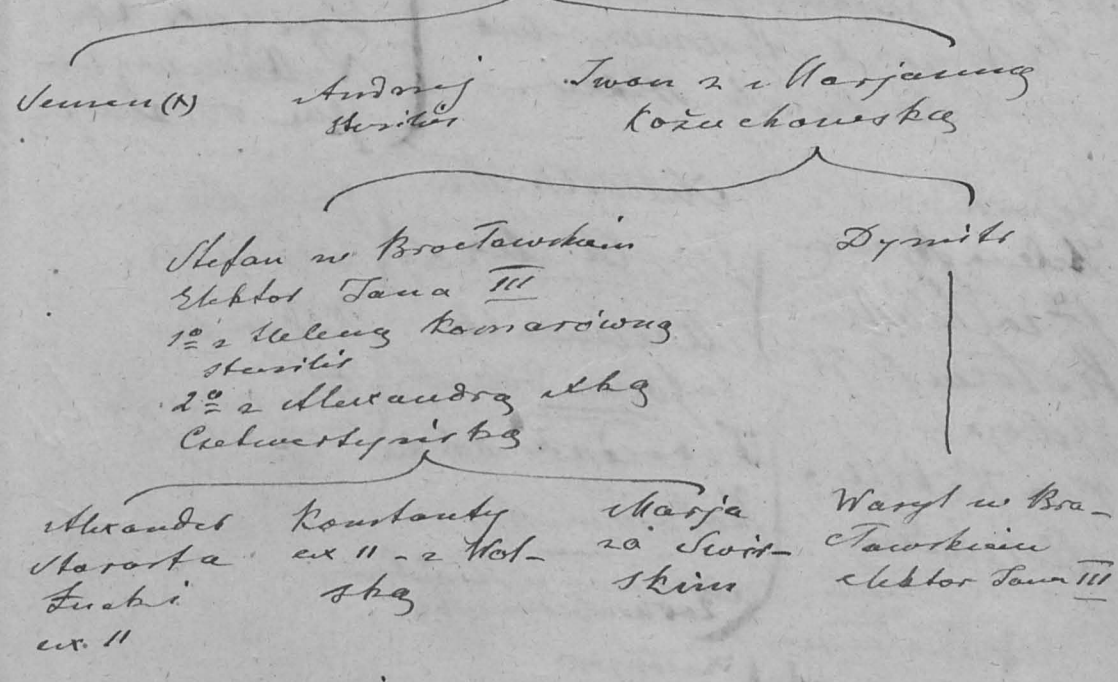 Semen (X)
Andrzej
sterilis
Iwan z x Marjanną
Kożuchowską
Stefan w Bracławskiem
Elektor Jana III
1º z Heleną Komarówną
sterilis
2º z Alexandrą xką
Czetwertyńską
Dymitr
Alexander
starosta
Łucki
ex II
Konstanty
ex II - z Wol-
ską
Marja
za Świr-
skim
Wasyl w Bra-
cławskiem
elektor Jana III